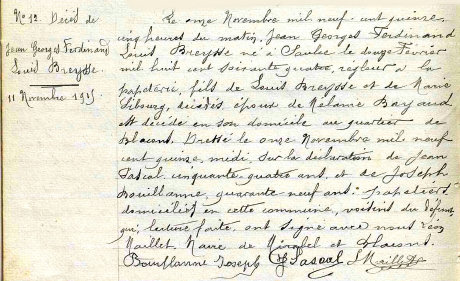 No 12 Décès de
Jean Georges Ferdinand
Louis Breysse.
11 Novembre 1915
Le onze Novembre mil neuf cent quinze,
cinq heures du matin, Jean Georges Ferdinand
Louis Breysse né à Saulce le douze Février
mil huit cent soixante quatre, régleur à la
papèterie, fils de Louis Breysse et de Marie
décédés, époux de Mélanie Bayaud
est décédé en son domicile au quartier de
Blacons. Dressé le onze Novembre mil neuf
cent quinze, midi, sur la déclaration de Jean
Pascal cinquante quatre ans, et de Joseph
Bouillanne, quarante neuf ans, papetiers
domiciliés en cette commune, voisins du défunt,
qui, lecture faite, ont signé avec nous Léon
Maillet Maire de Mirabel et Blacons.
Bouillanne Joseph J Pascal L Maillet